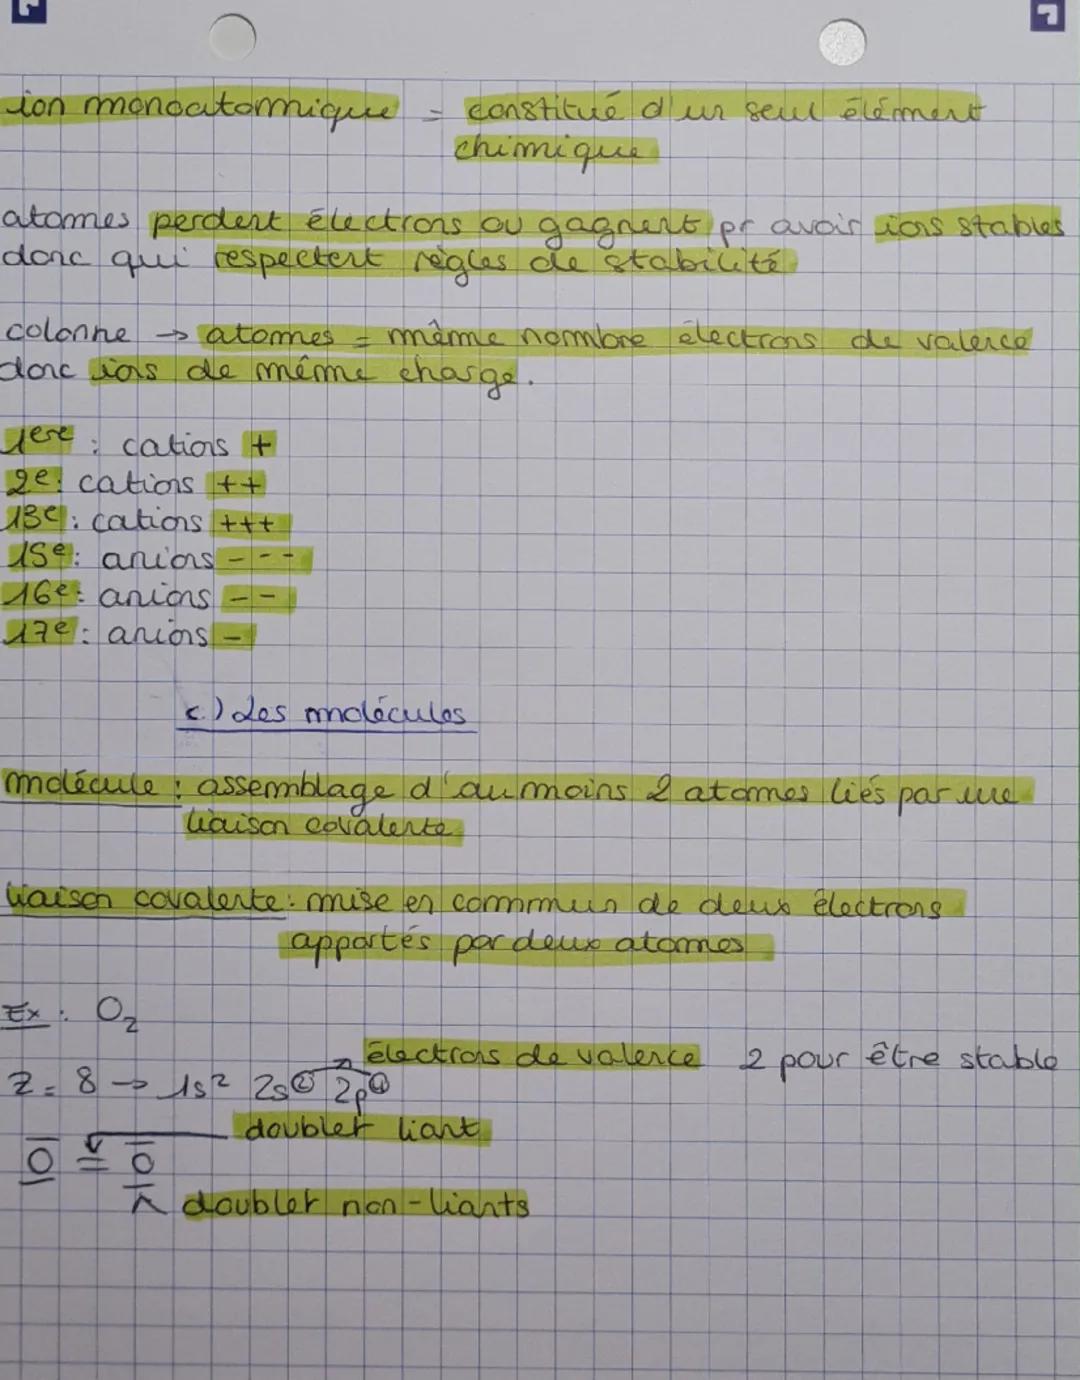 ion monoatomique = constitué d'un seul élément
chimique
atomes perdent électrons ou gagnent pr avoir ions stables
donc qui respectent règles de stabilité
colonne → atomes = même nombre électrons de valence
donc ions de même charge.
1ere : cations +
2e: cations ++
13e: cations +++
15e: anions ---
16e: anions --
17e: anions -
c.) Les molécules
molécule : assemblage d'au moins 2 atomes liés par une
liaison covalente
liaison covalente: mise en commun de deux électrons
apportés par deux atomes
Ex : O₂
électrons de valence 2 pour être stable
Z = 8 → 1s² 2s② 2p④
doublet liant
O = O
doublet non-liants